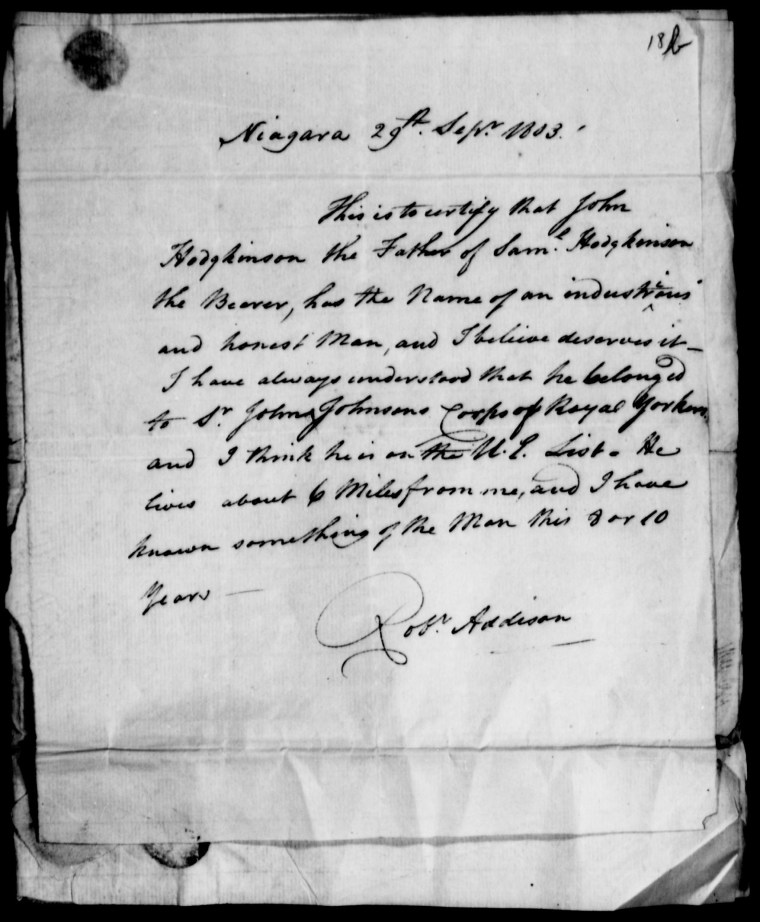 18b
Niagara 29th. Sepr. 1803.
This is to certify that John
Hodgkinson the Father of Saml. Hodgkinson
the Bearer, has the Name of an industrious
and honest Man, and I believe deserves it –
I have always understood that he belonged
to Sr. John Johnsons Corps of Royal Yorkers,
and I think he is on the U. E. List – He
lives about 6 Miles from me, and I have
known something of the Man this 8 or 10
Years –
Robt. Addison